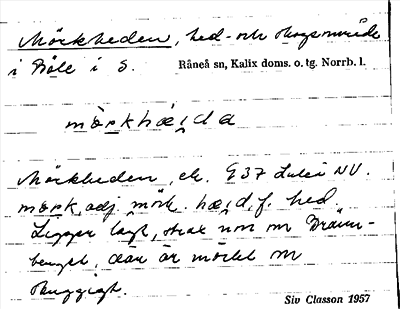 Mörkheden, hed- och skogsområde
i Böle i S. Råneå sn, Kalix doms. o. tg. Norrb. l.
Mörkheden, ek. 937 Luleå NV.
mörk, adj. mörk. hæd, f. hed.
Ligger lågt, strax norr om Bränn-
berget, där är mörkt och
skuggigt.
Siv Classon 1957